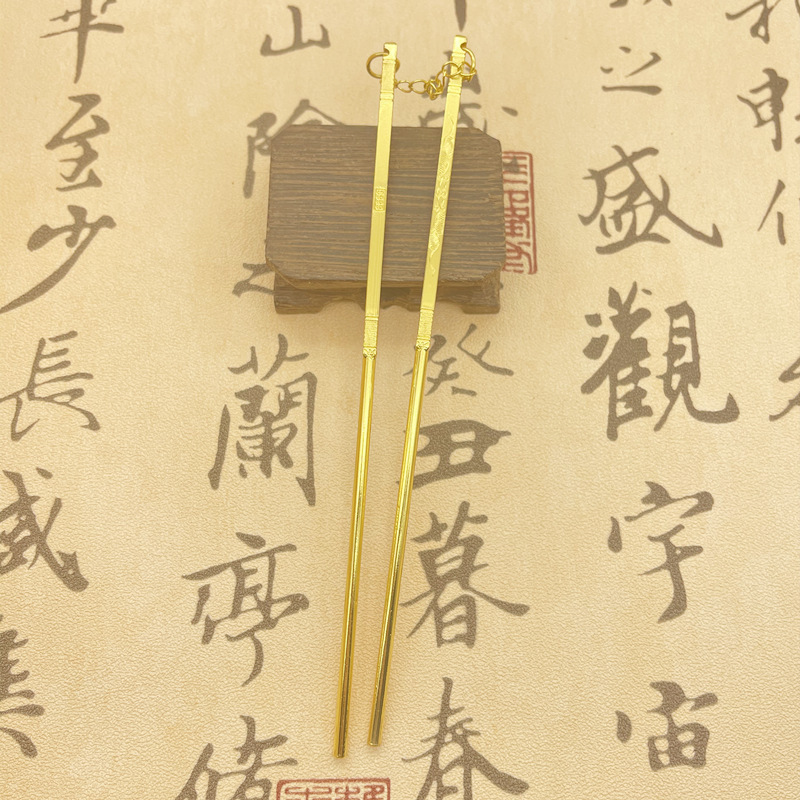 之盛觀宇宙
癸丑暮春
山陰之蘭亭脩
至少長咸集